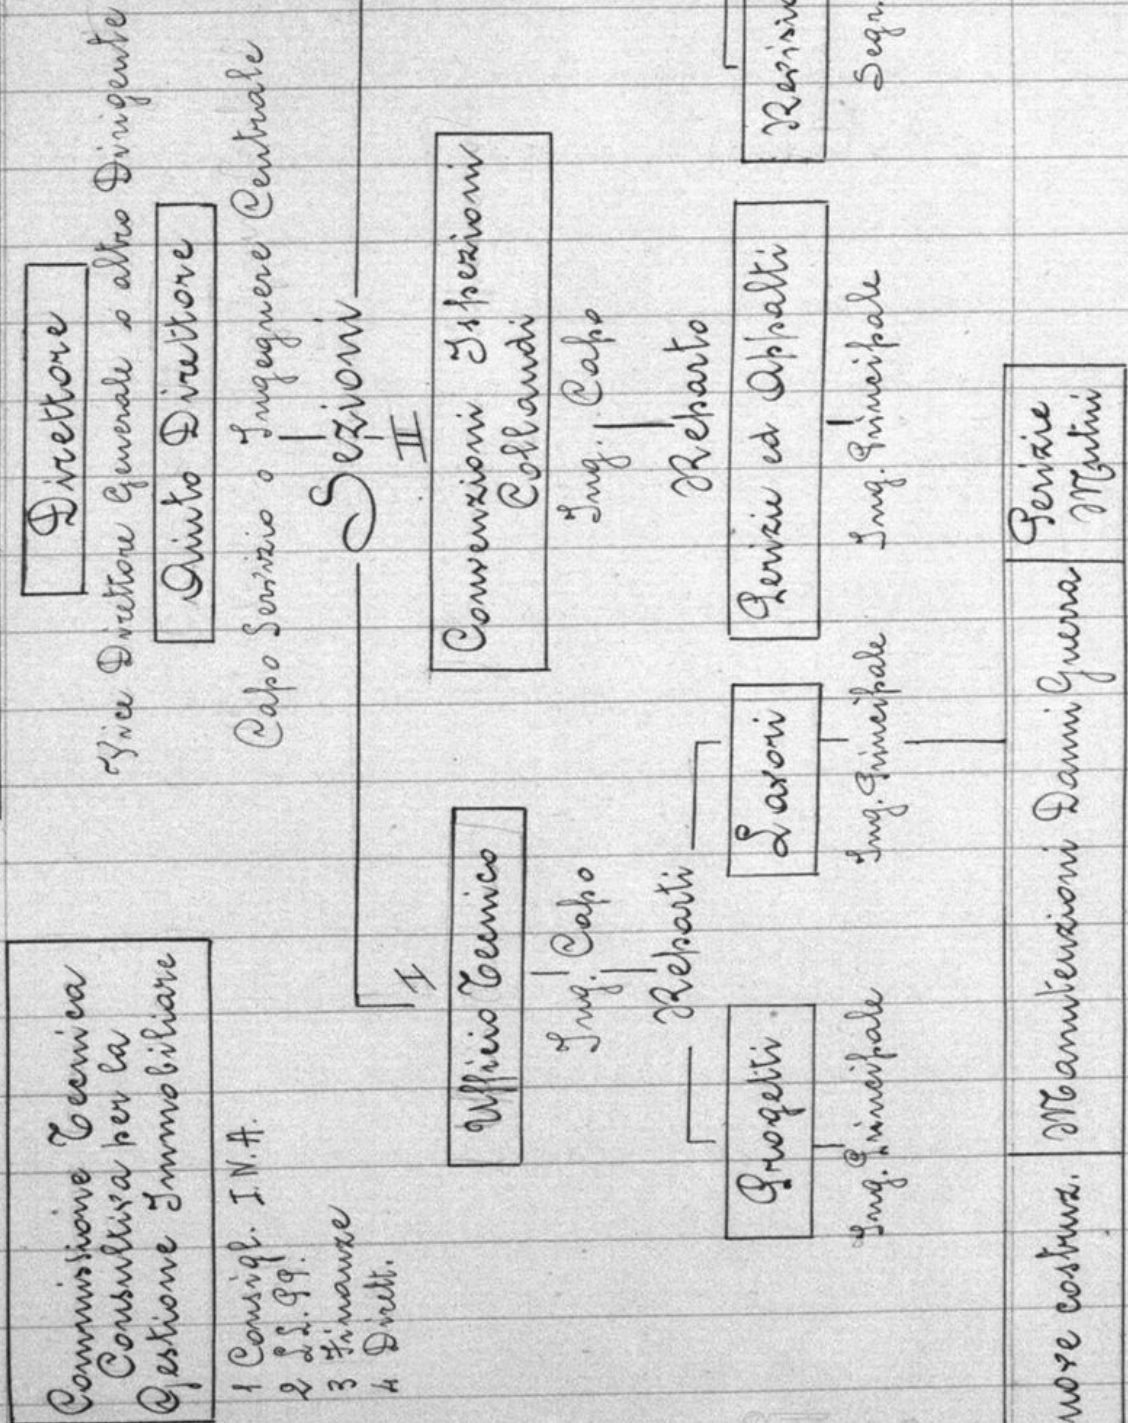 Commissione Tecnica
Consultiva per la
Gestione Immobiliare
1 Consigl. I.N.A.
2 LL.PP.
3 Finanze
4 Dirett.
Direttore
Vice Direttore Generale o altro Dirigente
Aiuto Direttore
Capo Servizio o Ingegnere Centrale
Sezioni
I
II
Ufficio Tecnico
Ing. Capo
Reparti
Convenzioni Ispezioni
Collaudi
Ing. Capo
Reparto
Progetti
Ing. Principale
Lavori
Ing. Principale
Perizie ed Appalti
Ing. Principale
Revisi
Segr.
nove costruz.
Manutenzioni
Danni Guerra
Perizie
Mutui